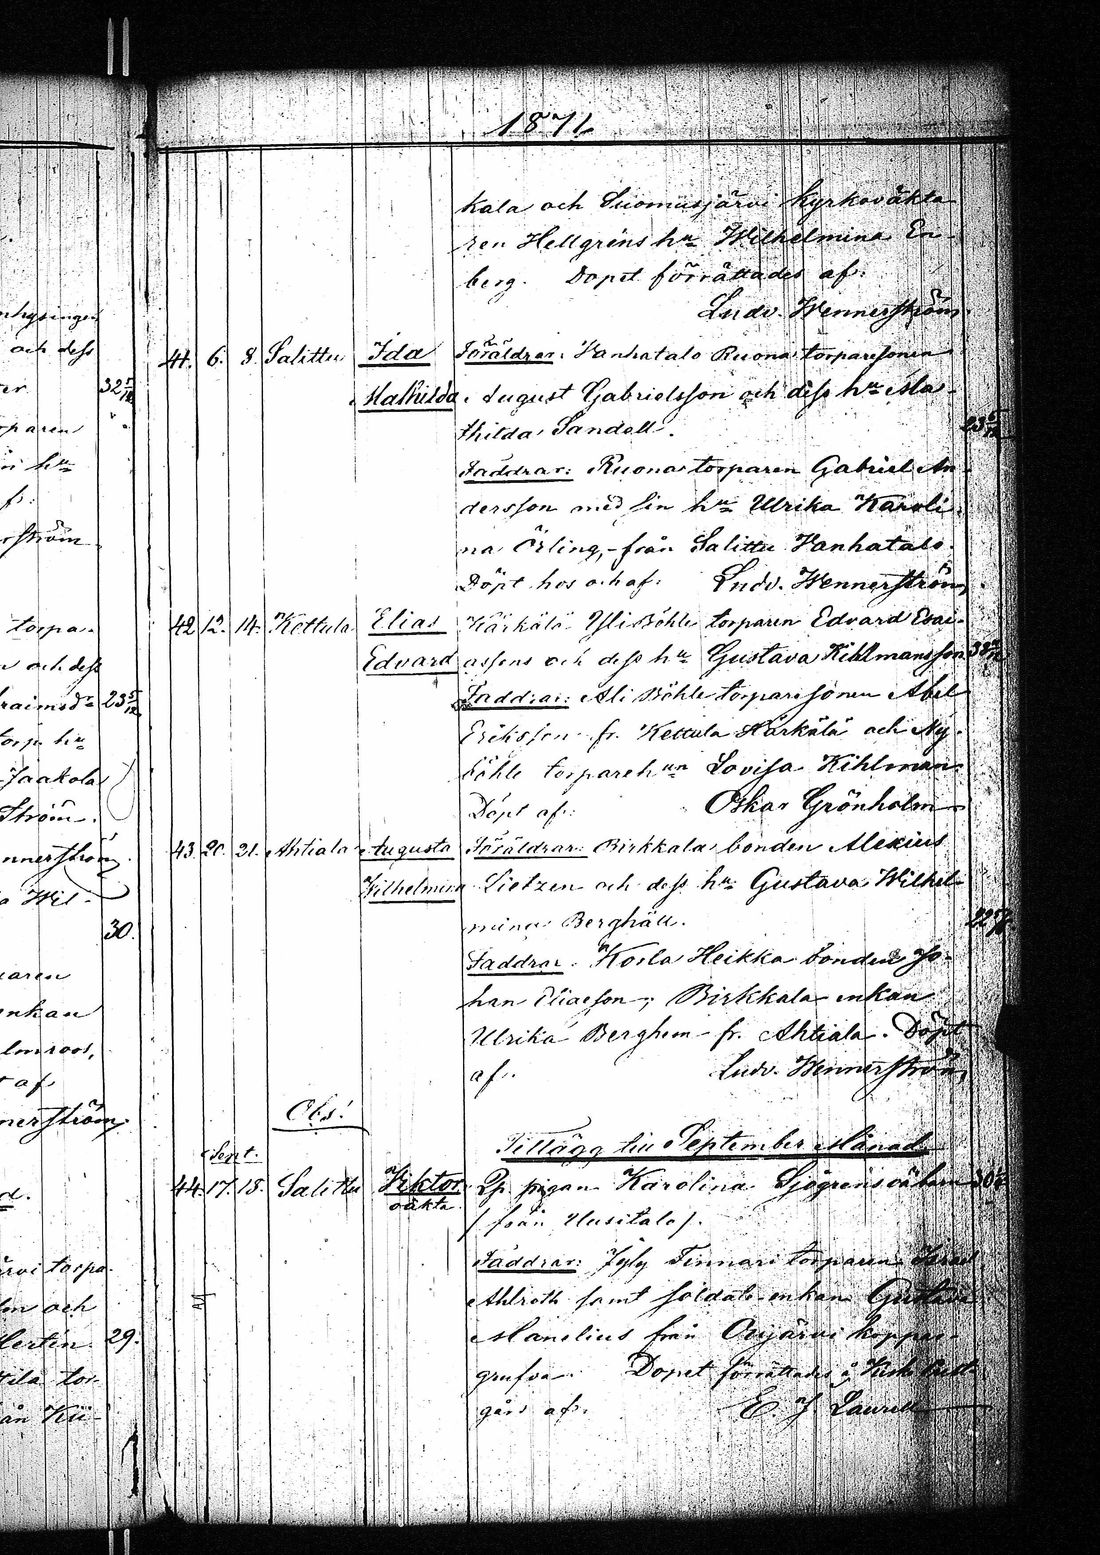 1871.
kala och Suomusjärvi kyrkoväkta
ren Hellgréns hu Wilhelmina En-
berg. Dopet förrättades af:
Ludv. Wennerström.
41. 6. 8. Salittu Ida Föräldrar: Vanhatalo Ruona torparesonen
Mathilda August Gabrielsson och dess hu Ma-
thilda Sandell. 23 5/12
Faddrar: Ruona torparen Gabriel An-
dersson med sin hu Ulrika Karoli-
na Örling, från Salittu Vanhatalo.
Döpt hos och af: Ludv. Wennerström,
42 12. 14. Kettula Elias Kärkälä Yli Böhle torparen Edvard Esai-
Edvard assons och dess hu Gustava Kihlmansson
Faddrar: Ali Böhle torparesonen Abel
Eriksson fr. Kettula Kärkälä och Ny-
böhle torpareh un Lovisa Kihlman
Döpt af: Oskar Grönholm
43. 20. 21. Ahtiala Augusta Föräldrar: Birkkala bonden Alexius
Wilhelmina Lietzen och dess hu Gustava Wilhel-
mina Berghäll.
Faddrar. Kosla Heikka bonden Jo-
han Eliaeson; Birkkala enkan
Ulrika Berghem fr. Ahtiala. Döpt
af: Ludv. Wennerström,
Obs!
Tillägg till September Månad.
Sept.
44. 17. 18. Salittu Viktor Pigan Karolina Sjögréns
oäkta (från Uusitalo).
Faddrar: Jyly Tinnari torparen
Ahlroth samt soldats-enkan Gustava
Manelius från Orijärvi koppar-
grufva. Dopet förrättades å Kisko Prest-
gård af: E. J. Laurell
och dess
32 5/12
rparen
torpa-
och dess
23 5/12
Jaakola
ström.
nnerström
Wil-
30.
enkan
lmroos,
af
nerström,
torpa-
och
29.
tor-